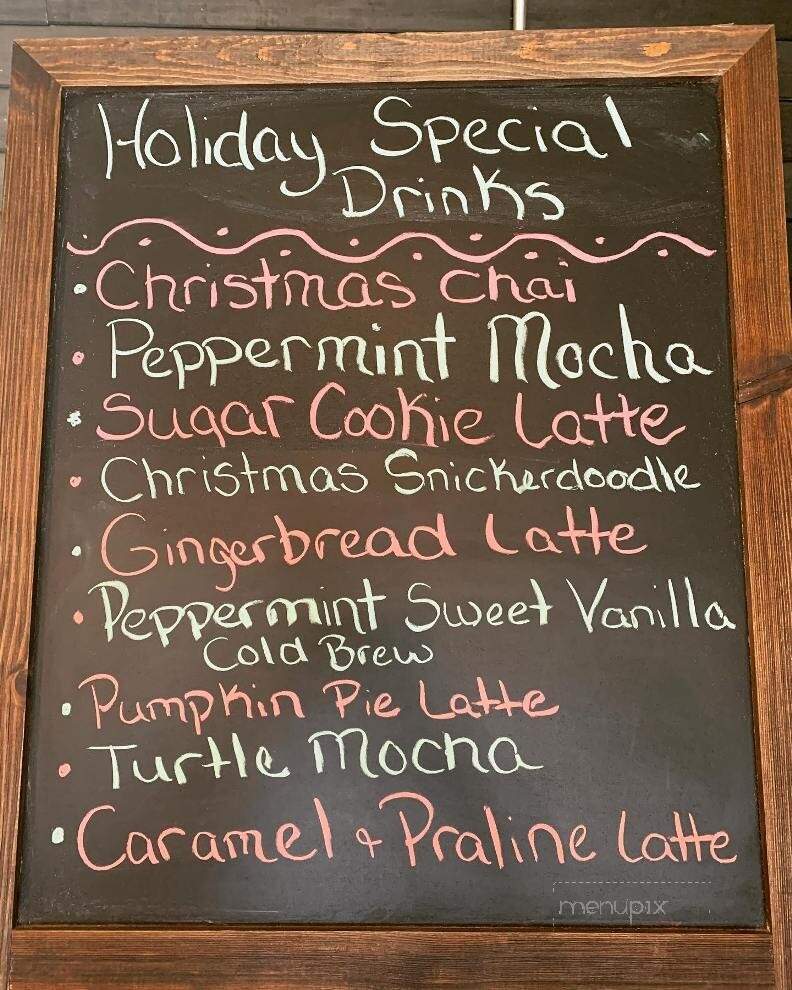 Holiday Special
Drinks
• Christmas Chai
• Peppermint Mocha
• Sugar Cookie Latte
• Christmas Snickerdoodle
• Gingerbread Latte
• Peppermint Sweet Vanilla
Cold Brew
• Pumpkin Pie Latte
• Turtle Mocha
• Caramel + Praline Latte
menupix